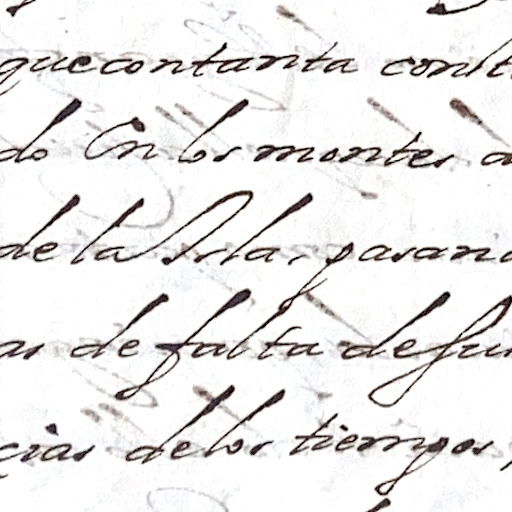 que con tanta cons
do En los montes a
de la Isla, pasand
as de falta de sus
çias de los tiempos,